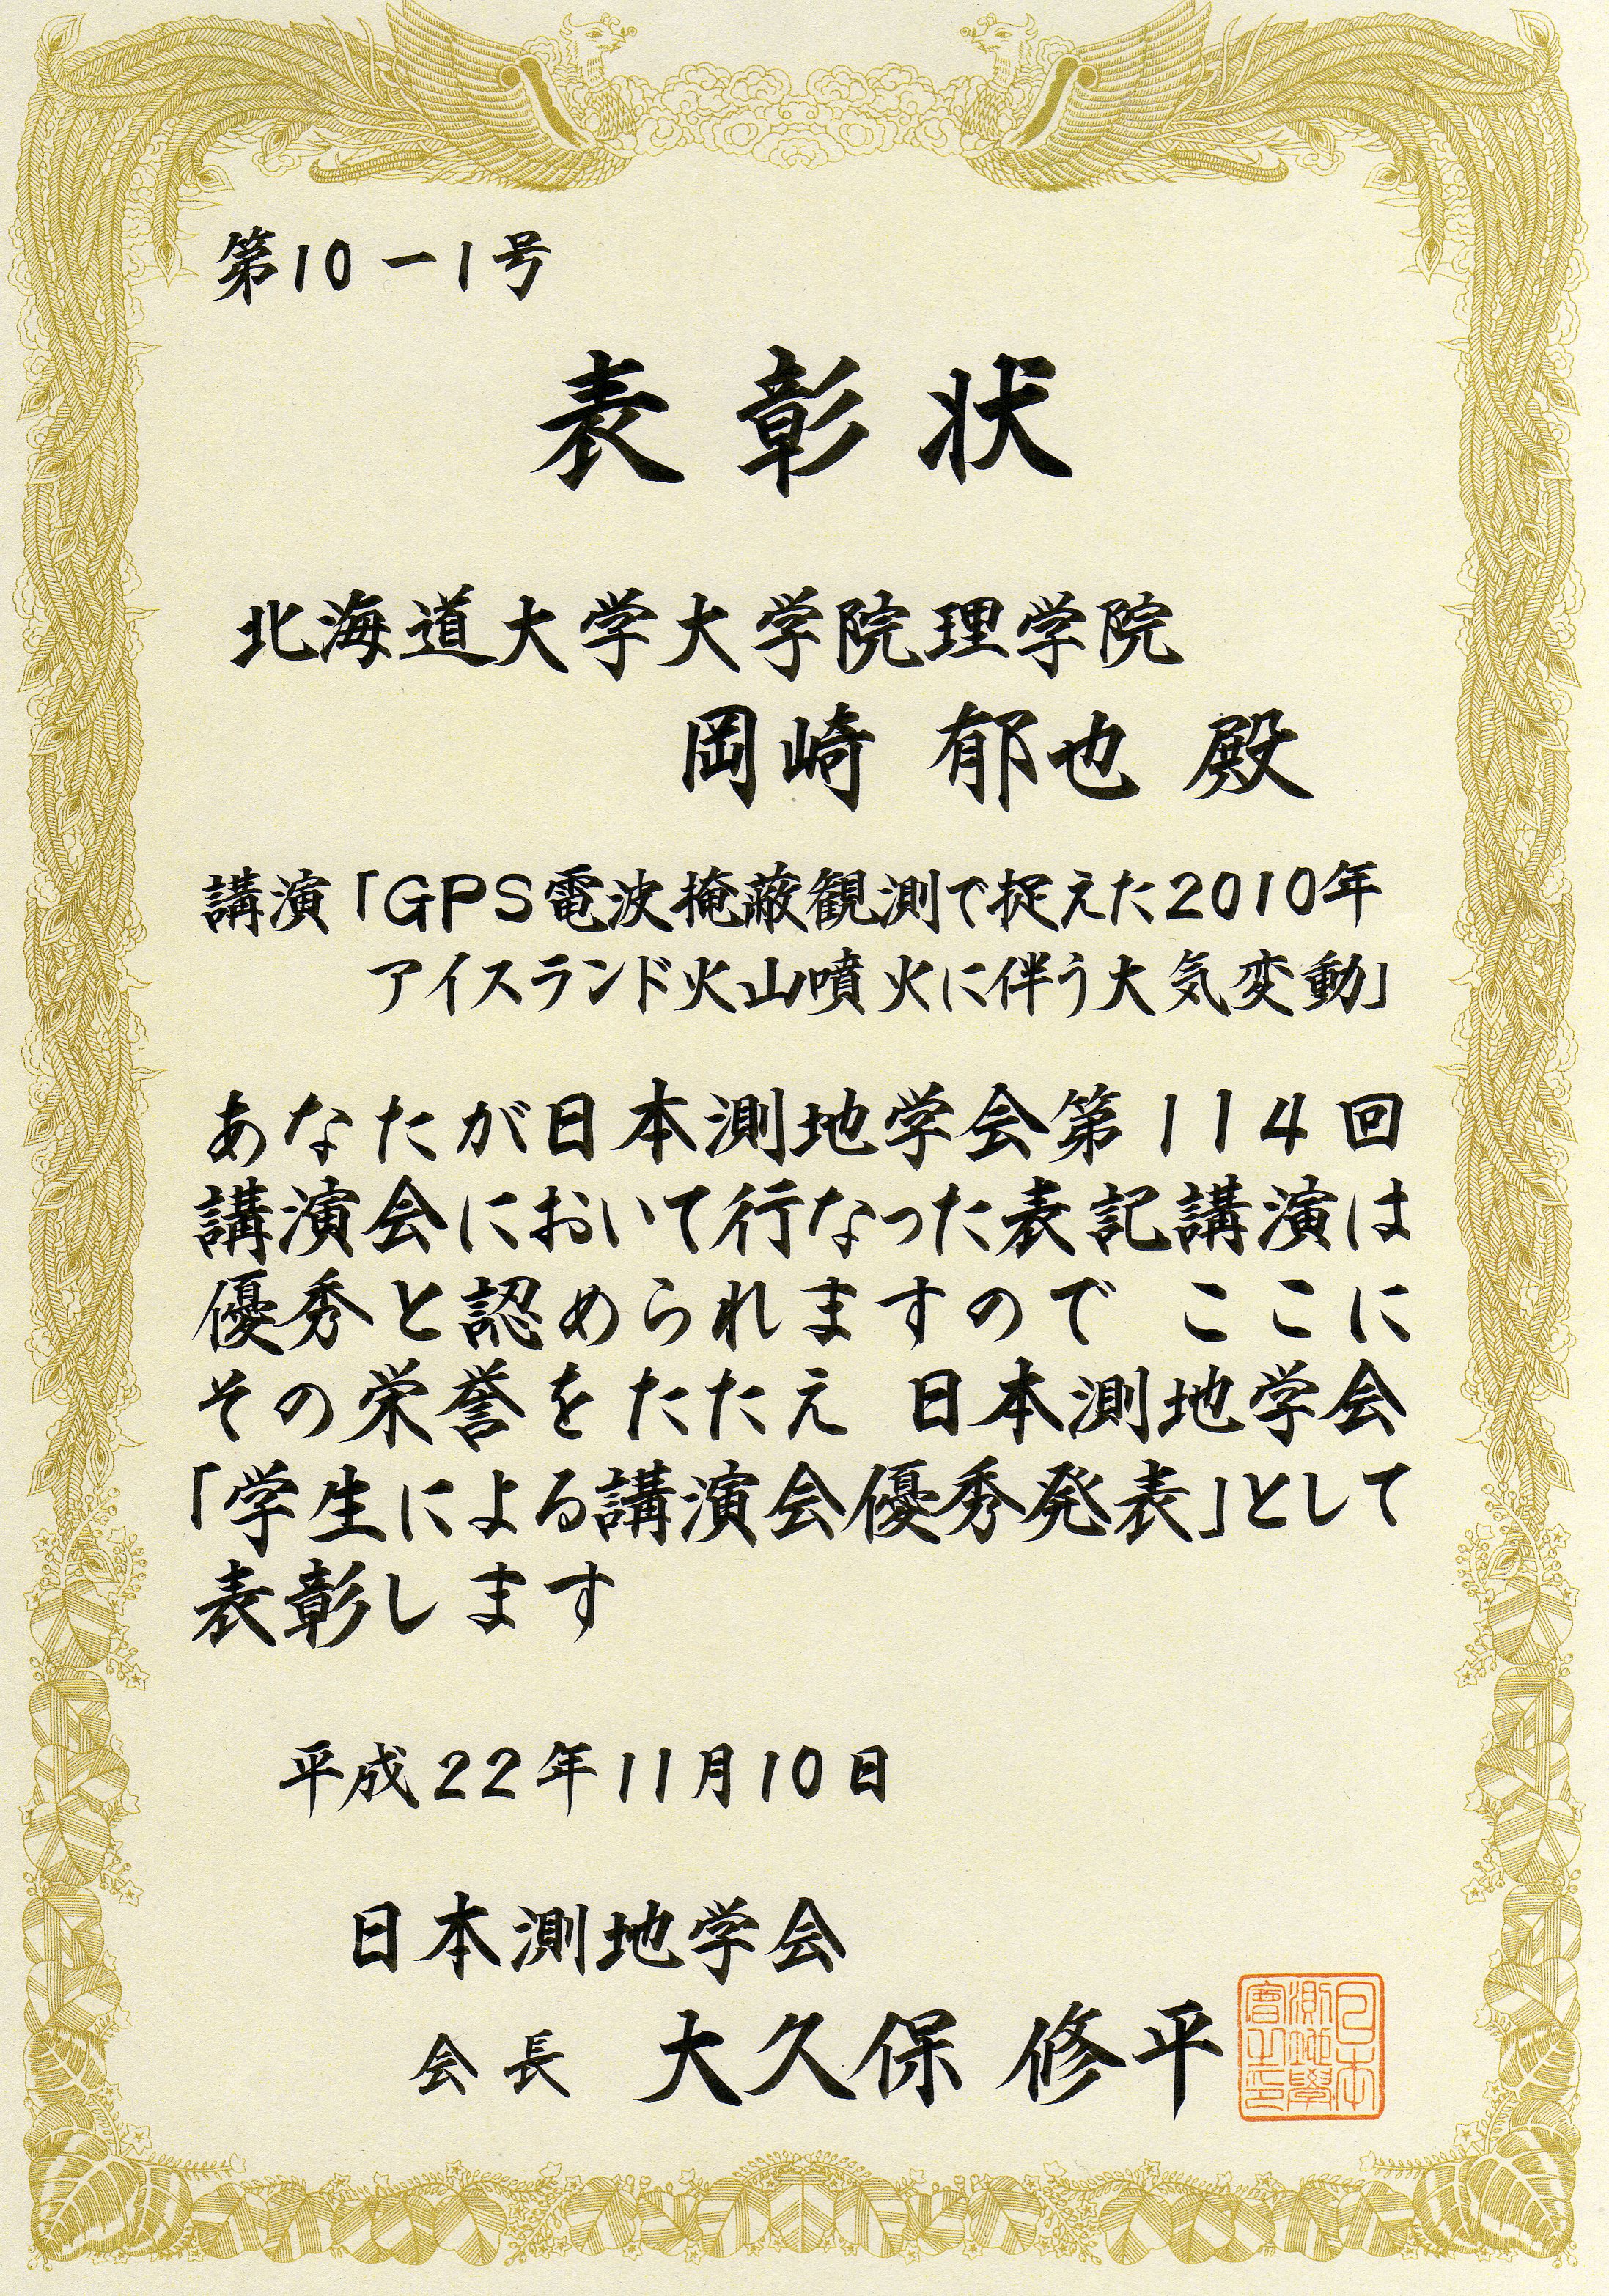 第10-1号
表彰状
北海道大学大学院理学院
岡崎 郁也 殿
講演「GPS電波掩蔽観測で捉えた2010年
アイスランド火山噴火に伴う大気変動」
あなたが日本測地学会第114回
講演会において行なった表記講演は
優秀と認められますので ここに
その栄誉をたたえ 日本測地学会
「学生による講演会優秀発表」として
表彰します
平成22年11月10日
日本測地学会
会長 大久保 修平
日本
測地學
會之印